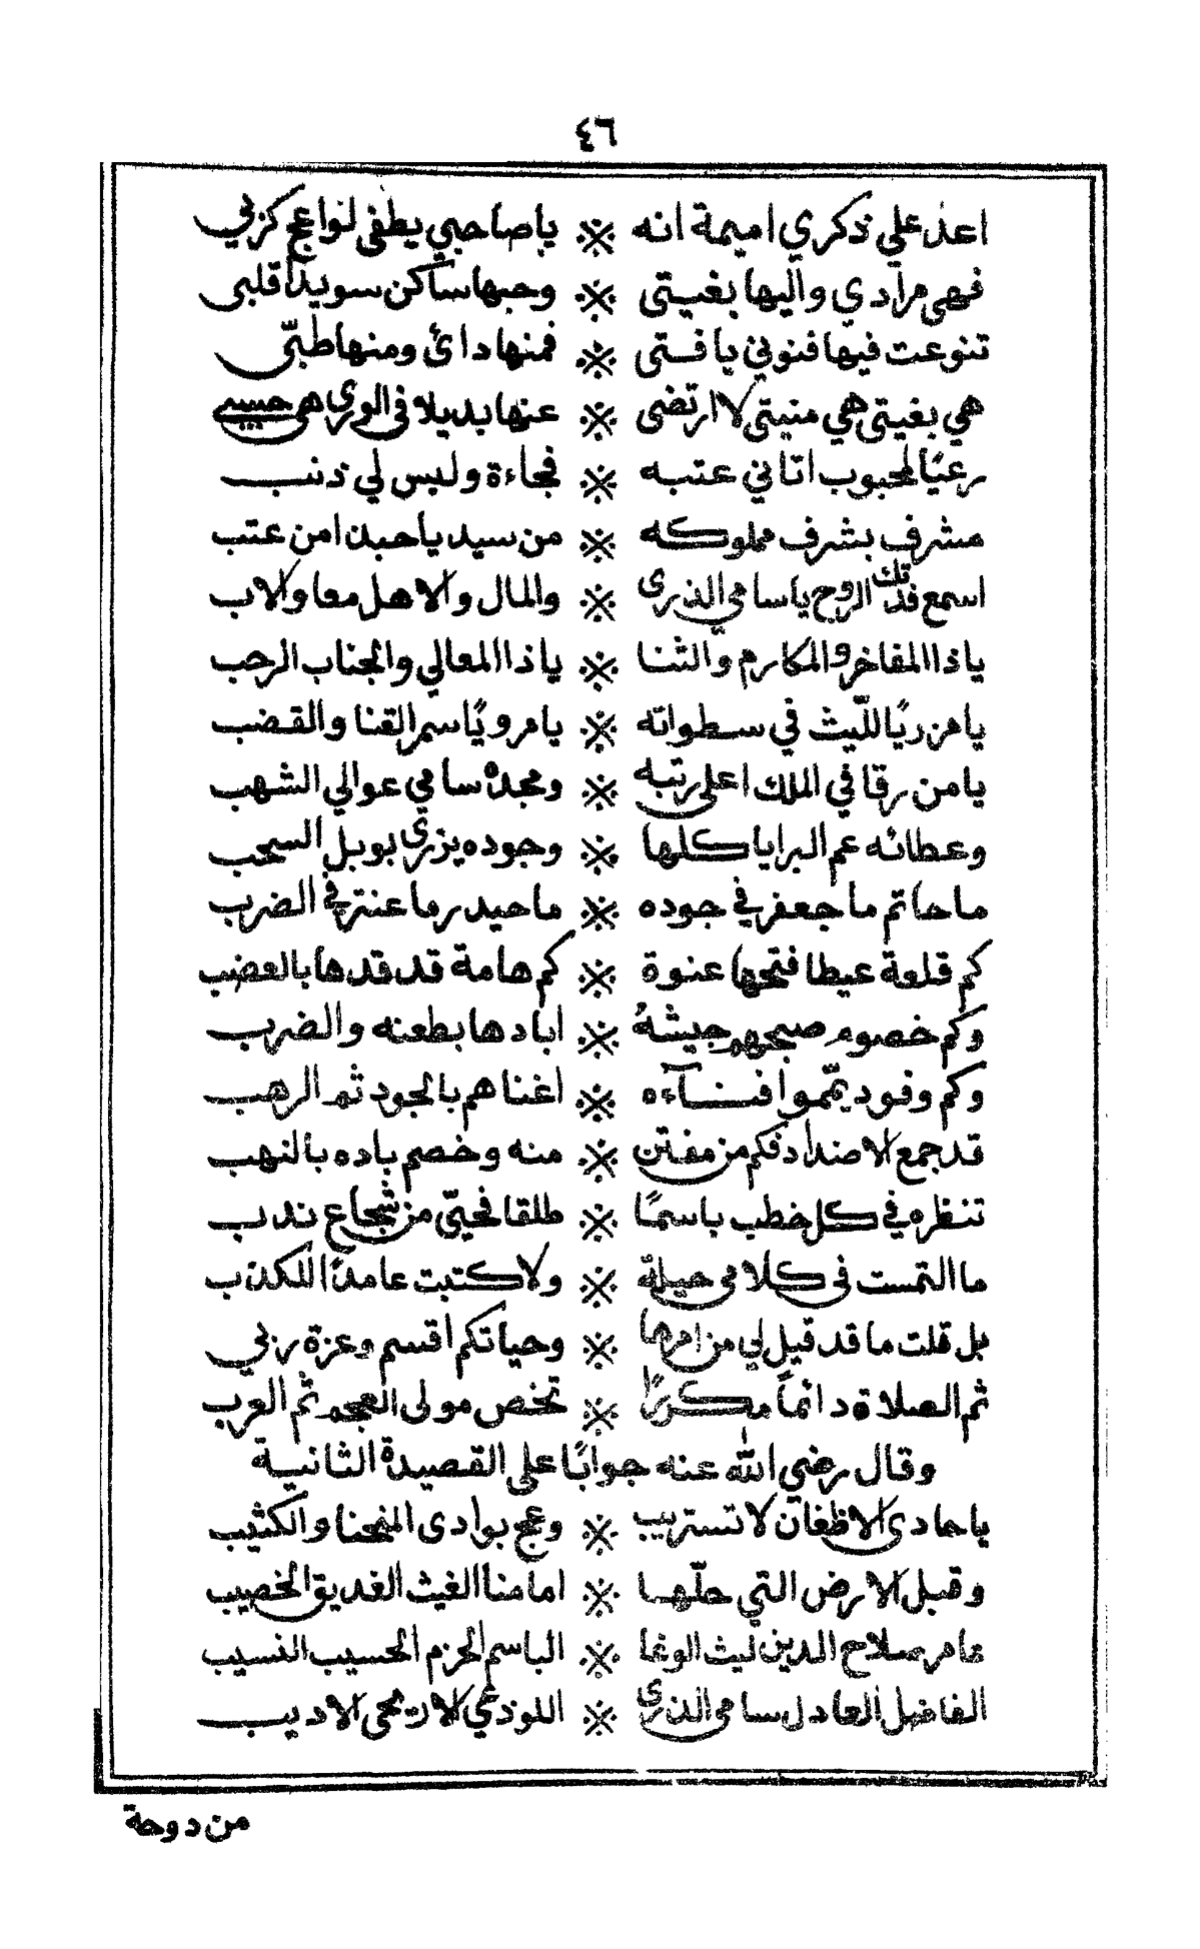 ٤٦
اعد علي ذكري اميمة انه ※ يا صاحبي يطفى لواعج كزبي
فهى مرادي واليها بغيتى ※ وحبها ساكن سويدا قلبى
تنوعت فيها فنوني يا فتى ※ فمنها دائ ومنها طبّى
هي بغيتى هي منيتي لا ارتضى ※ عنها بديلا فى الورى هى حسبي
رعيًا لمحبوب اتاني عتبه ※ فجاءة وليس لي ذنب
مشرف بشرف مملوكه ※ من سيد يا حبذا من عتب
اسمع فدتك الروح يا سامي الذرى ※ والمال والاهل معا والاب
يا ذا المفاخر والمكارم والثنا ※ يا ذا المعالي والجناب الرحب
يا مزريًا لليّث في سطواته ※ يا مرويًا سمر القنا والقضب
يا من رقا في الملك اعلى رتبه ※ ومجده سامي عوالي الشهب
وعطائه عم البرايا كلها ※ وجوده يزري بوبل السحب
ما حاتم ما جعفر في جوده ※ ما حيدر ما عنتر في الضرب
كم قلعة عيطا فتحها عنوة ※ كم هامة قد قدها بالعضب
وكم خصوم صبحهم جيشهُ ※ ابادها بطعنه والضرب
وكم وفود يمّموا فنآءه ※ اغناهم بالجود ثم الرهب
قد جمع الاضداد فكم من مفتن ※ منه وخصم باده بالنهب
تنظره في كل خطب باسمًا ※ طلقا فحيّي من شجاع ندب
ما التمست فى كلامي حيلة ※ ولا كتبت عامدًا للكذب
بل قلت ما قد قيل لي من امرها ※ وحياتكم اقسم وعزة ربي
ثم الصلاة دائماً مكررًا ※ تخص مولى العجم ثم العرب
وقال رضي الله عنه جوابًا على القصيدة الثانية
يا حادى الاظغان لا تستريب ※ وعج بوادى المنحنا والكثيب
وقبل الارض التي حلّها ※ امامنا الغيث الغديق الخصيب
عامر صلاح الدين ليث الوغا ※ الباسم الحزم الحسيب النسيب
الفاضل العادل سامي الذرى ※ اللوذعي الاريحى الاديب
من دوحة